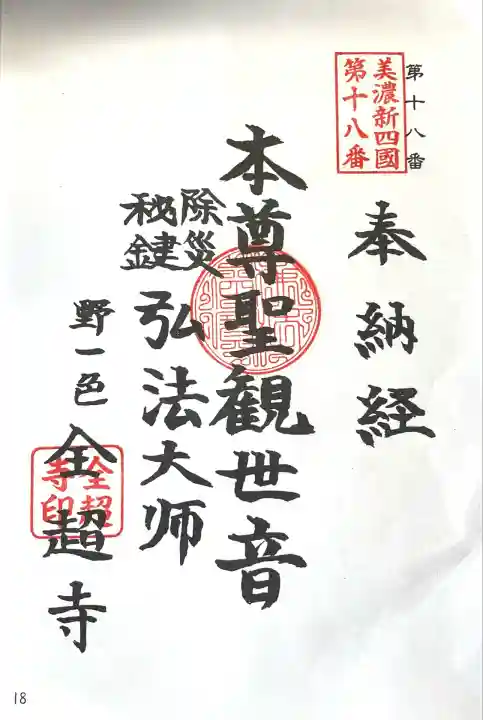 第十八番
美濃新四國
第十八番
奉納経
本尊聖観世音
除災
秘鍵
弘法大师
野一色
全超寺
全超
寺印
18